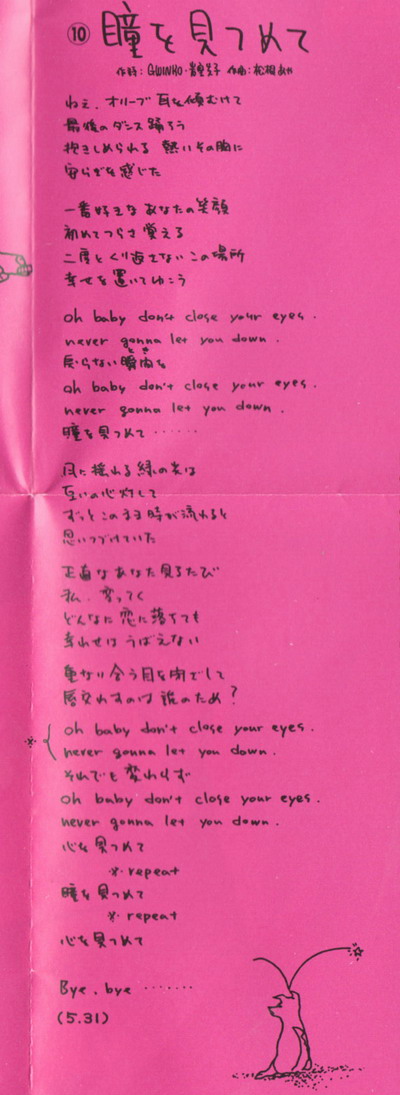 ⑩ 瞳を見つめて
作詩：GWINKO・ 作曲：松根あや
ねぇ. オリーブ 耳を傾むけて
最後のダンス 踊ろう
抱きしめられる 熱いその胸に
安らぎを感じた
一番好きな あなたの笑顔
初めてつらさ 覚える
二度とくり返さない この場所
幸せを置いてゆこう
Oh baby don't close your eyes.
never gonna let you down.
戻らない瞬間を
とき
Oh baby don't close your eyes.
never gonna let you down.
瞳を見つめて ‥‥‥
風に揺れる 緑の炎は
互いの心灯して
ずっとこのまま 時が流れると
思いつづけていた
正直な あなた見るたび
私. 変ってく
どんなに 恋に落ちても
幸わせは うばえない
重なり合う目を閉でして
唇交わすのは 誰のため？
※ Oh baby don't close your eyes.
never gonna let you down.
それでも 変わらず
Oh baby don't close your eyes.
never gonna let you down.
心を見つめて
※ repeat
瞳を見つめて
※ repeat
心を見つめて
Bye. bye ‥‥‥
(5.31)